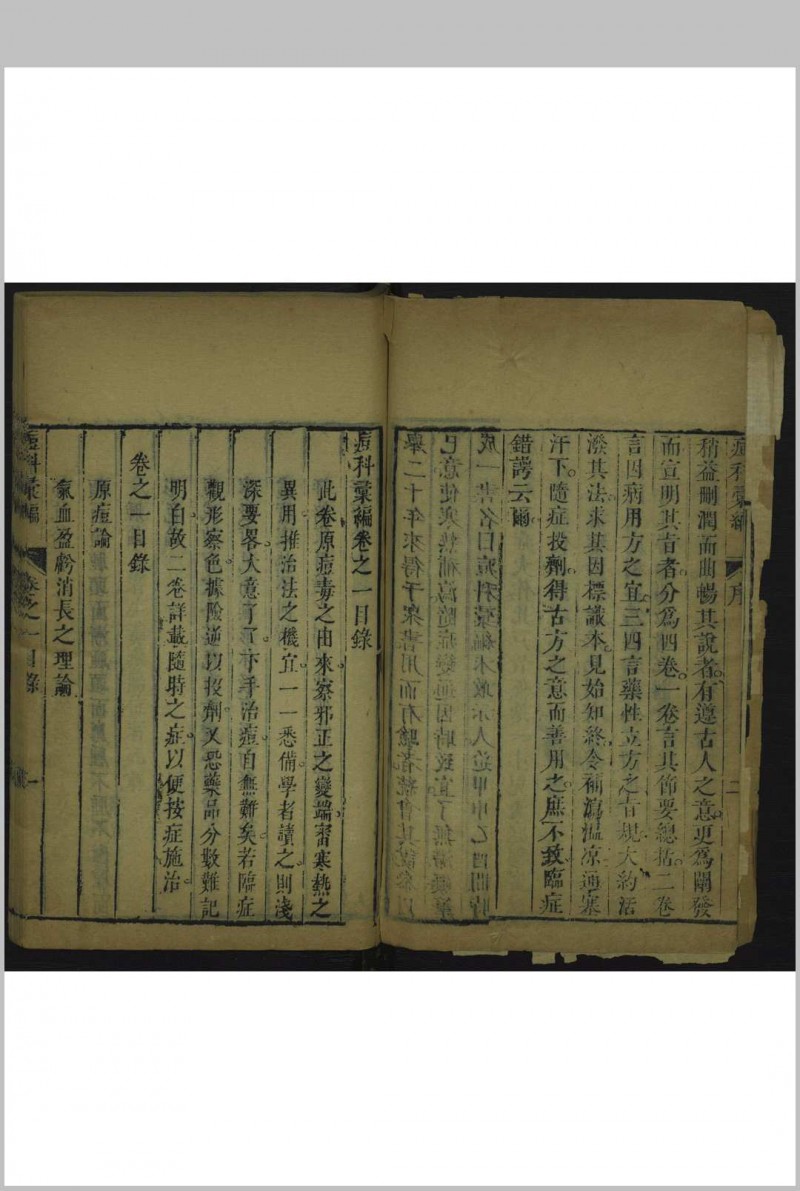 痘科彙編 序 二
稍益刪潤而曲暢其說者有遵古人之意更爲闡發
而宣明其旨者分爲四卷一卷言其節要總括二卷
言因病用方之宜三四言藥性立方之旨規大約活
潑其法求其因標識本見始知終令補瀉温凉通塞
汗下隨症投劑得古方之意而善用之庶不致臨症
錯謗云爾
痘科彙編卷之一目錄
此卷原痘毒之由來察邪正之變端審寒熱之
異用推治法之機宜一一悉備學者讀之則淺
深要畧大意了了亦乎治痘自無難矣若臨症
觀形察色據險逆以投劑又恐藥品分數難記
明白故二卷詳載隨時之症以便按症施治
卷之一目錄
原痘論
氣血盈虧消長之理論
痘科彙編 卷之一目錄 一